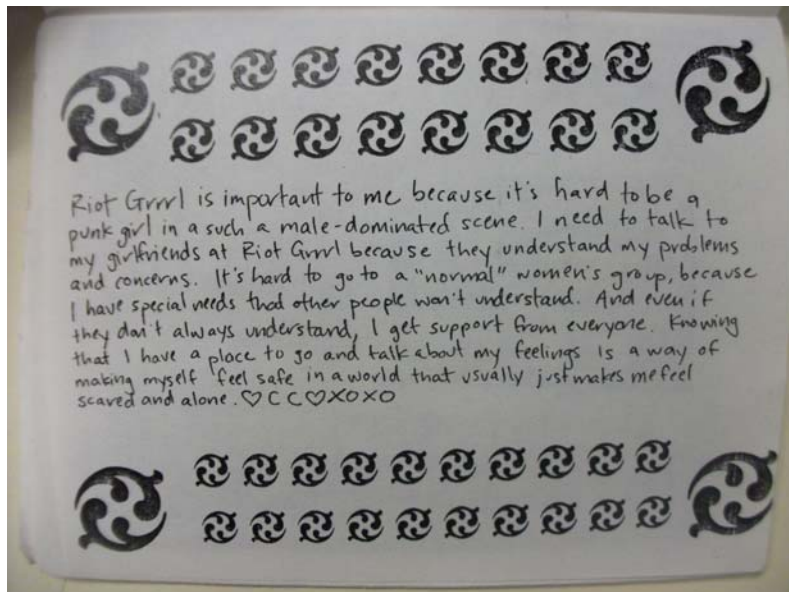 Riot Grrrl is important to me because it's hard to be a
punk girl in a such a male-dominated scene. I need to talk to
my girlfriends at Riot Grrrl because they understand my problems
and concerns. It's hard to go to a "normal" women's group, because
I have special needs that other people won't understand. And even if
they don't always understand, I get support from everyone. Knowing
that I have a place to go and talk about my feelings is a way of
making myself feel safe in a world that usually just makes me feel
scared and alone. ♡ C C ♡ XOXO